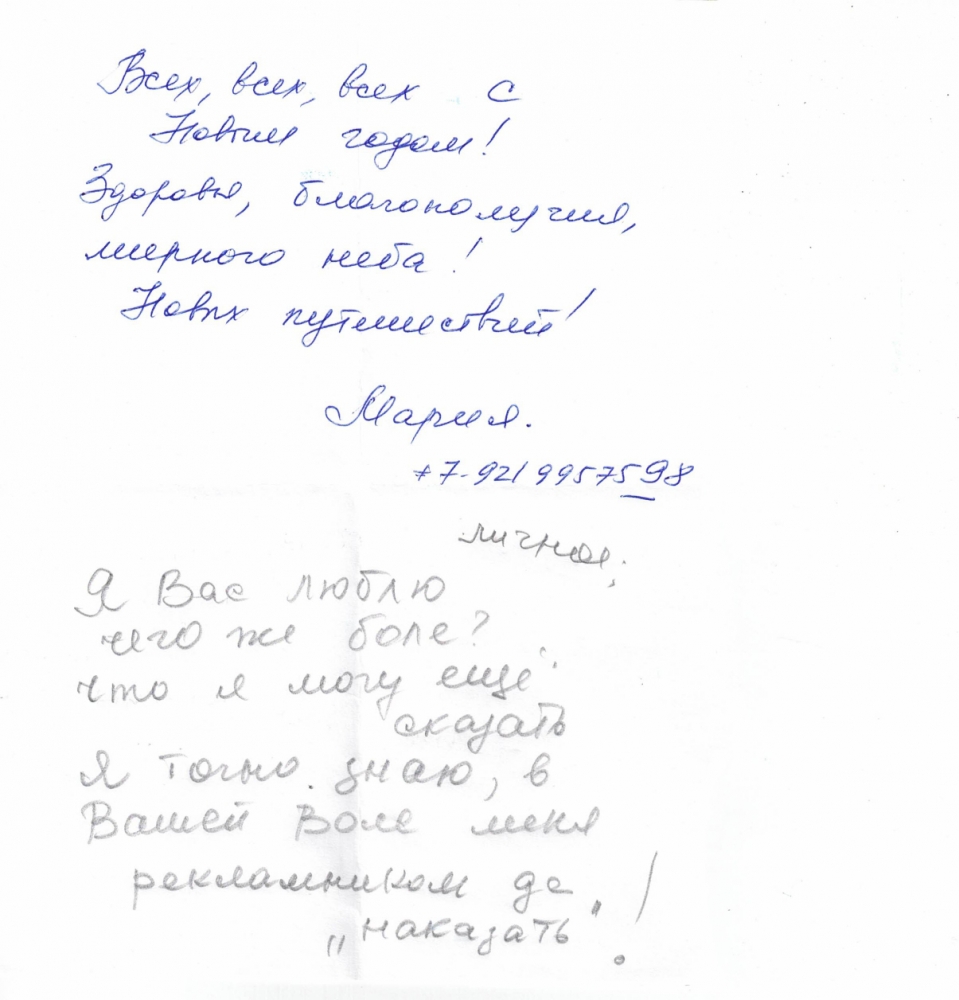 Всех, всех, всех с
Новым годом!
Здоровья, благополучия,
мирного неба!
Новых путешествий!
Мария.
+7-921 9957598
личное;
Я Вас люблю
чего же боле?
что я могу ещё
сказать
Я точно знаю, в
Вашей Воле меня
рекламником де
„наказать"!